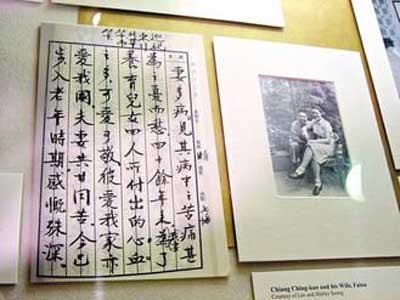 妻多病見其病中之苦痛甚
為之憂而愁四十餘年來為了
養育兒女四人所付出的心血
之多可愛可敬彼愛我家亦
愛我國夫妻共甘同苦今已
步入老年時期感慨殊深。
Chiang Ching-kuo and his Wife, Faina
Courtesy of Leo and Shirley Soong